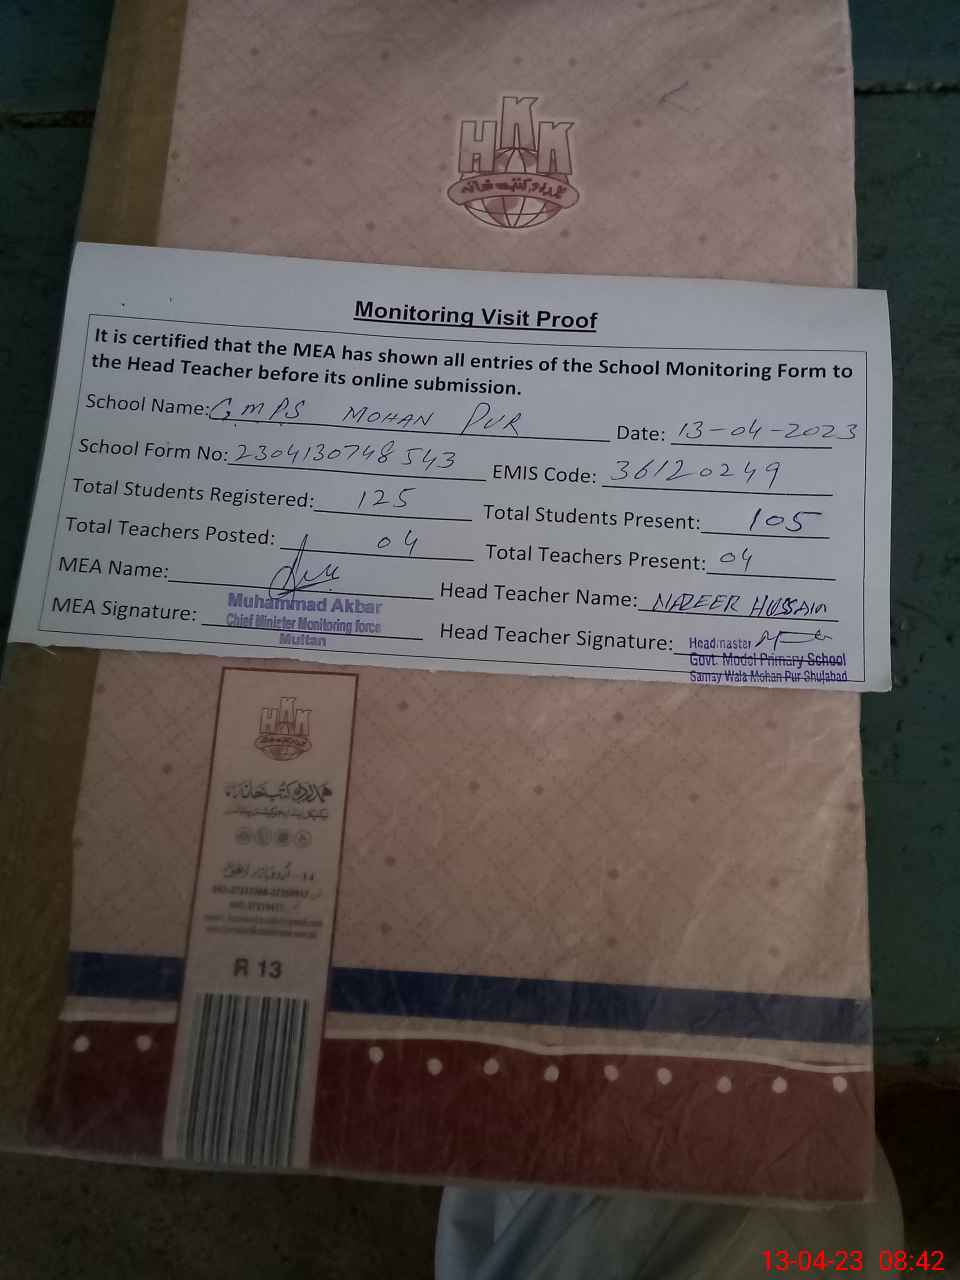 HKK
ہمدرد کتب خانہ
Monitoring Visit Proof
It is certified that the MEA has shown all entries of the School Monitoring Form to
the Head Teacher before its online submission.
School Name: GMPS MOHAN PUR Date: 13-04-2023
School Form No: 2304130748543 EMIS Code: 36120249
Total Students Registered: 125 Total Students Present: 105
Total Teachers Posted: 04 Total Teachers Present: 04
MEA Name: Head Teacher Name: NAZEER HUSSAIN
MEA Signature: Muhammad Akbar
Chief Minister Monitoring force
Multan
Head Teacher Signature: Headmaster
Govt. Model Primary School
Samay Wala Mohan Pur Shujabad
HKK
ہمدرد کتب خانہ
R 13
13-04-23 08:42